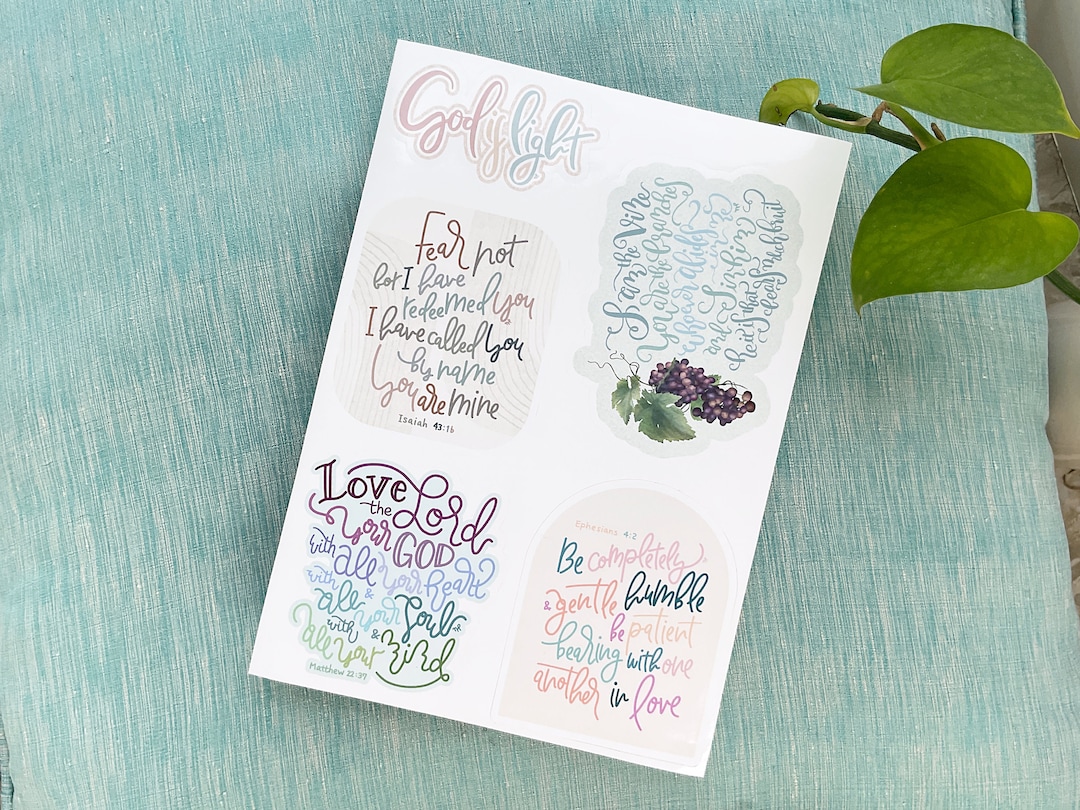 God is light
Fear not
for I have
redeemed you
I have called you
by name
You are mine
Isaiah 43:1b
I am the Vine
You are the branches
whoever abides in me
and I in him
he it is that
bears much fruit
Love the Lord
your GOD
with all your heart
& with all your soul
& with all your mind
Matthew 22:37
Ephesians 4:2
Be completely
humble
& gentle
be patient
bearing with one
another in love